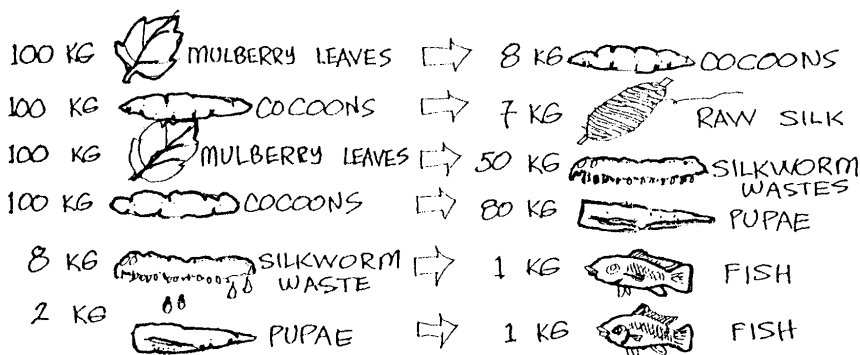 100 KG MULBERRY LEAVES 8 KG COCOONS
100 KG COCOONS 7 KG RAW SILK
100 KG MULBERRY LEAVES 50 KG SILKWORM WASTES
100 KG COCOONS 80 KG PUPAE
8 KG SILKWORM WASTE 1 KG FISH
2 KG PUPAE 1 KG FISH